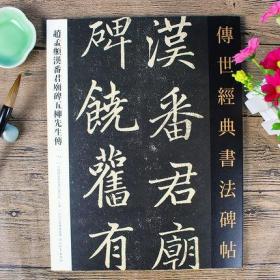 傳世經典書法碑帖
漢番君廟
碑饒舊有
趙孟頫漢番君廟碑五柳先生傳